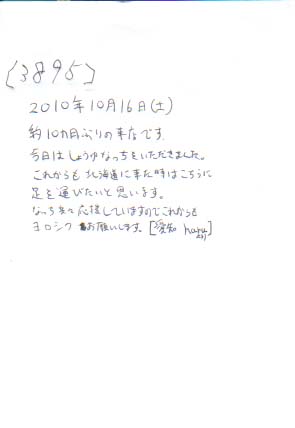 [3895]
2010年10月16日(土)
約10カ月ぶりの来店です。
今日はしょうゆなっちをいただきました。
これからも北海道に来た時はこちらに
足を運びたいと思います。
なっち共々応援していますのでこれからも
ヨロシクお願いします。[愛知 haru